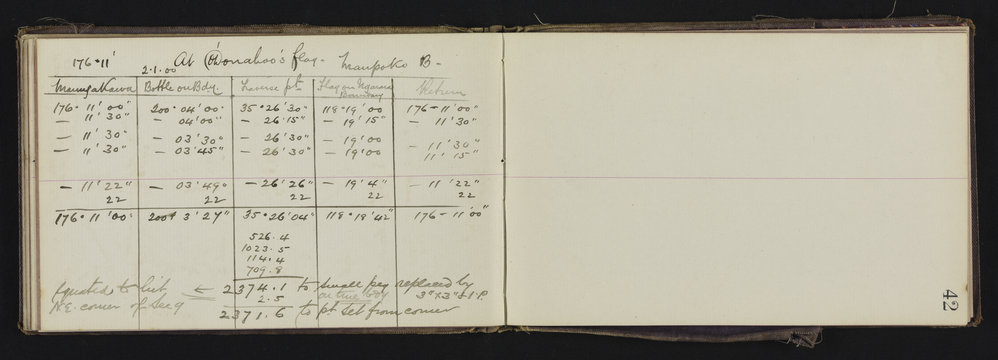 176°11' At O'Donahoo's flag - Maupoko B -
2.1.00
Maungakawa Bottle on Bdy Traverse pt Flag on Ngarara Boundary Return
176° 11' 00" 200° 04' 00" 35° 26' 30" 118° 19' 00 176 - 11' 00"
— 11' 30" — 04' 00" — 26' 15" — 19' 15" — 11' 30"
— 11' 30" — 03' 30" — 26' 30" — 19' 00 — 11' 30"
— 11' 30" — 03' 45" — 26' 30" — 19' 00 11' 15"
— 11' 22" — 03' 49" — 26' 26" — 19' 4" — 11' 22"
22 22 22 22 22
176° 11' 00" 200° 3' 27" 35° 26' 04" 118° 18' 42" 176 - 11' 00"
526.4
1023.5
114.4
709.8
equated to hit 2374.1 to small peg replaced by
N.E. corner of Sec 9 2.5 on true bdy 3" x 3" & I.P.
2371.6 to pt set from corner
42